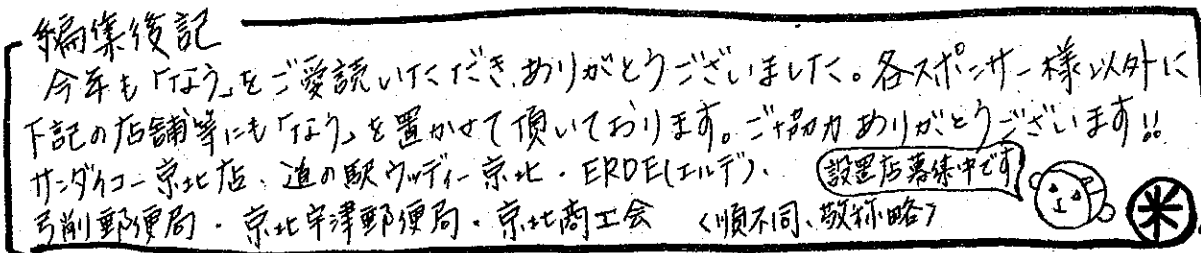 編集後記
今年も「なう」をご愛読いただき、ありがとうございました。各スポンサー様以外に
下記の店舗等にも「なう」を置かせて頂いております。ご協力ありがとうございます!!
サンダイコー京北店、道の駅ウッディー京北・ERDE(エルデ)、
設置店募集中です
弓削郵便局・京北宇津郵便局・京北商工会 〈順不同、敬称略〉
米